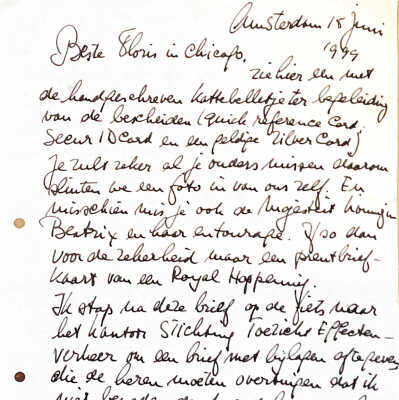 Amsterdam 18 juni
1999
Beste Floris in Chicago,
zie hier een met
de hand geschreven kattebelletje ter begeleiding
van de bescheiden (quick reference Card,
Secur ID Card en een geldige Zilver Card)
Je zult zeker al je ouders missen daarom
sluiten we een foto in van ons zelf. En
misschien mis je ook de Majesteit koningin
Beatrix en haar entourage. Zo dan
voor de zekerheid maar een prentbrief-
kaart van een Royal Happening.
Ik stap na deze brief op de fiets naar
het kantoor Stichting Toezicht Effecten-
verkeer om een brief met bijlagen af te geven
die de heren moeten overtuigen dat ik